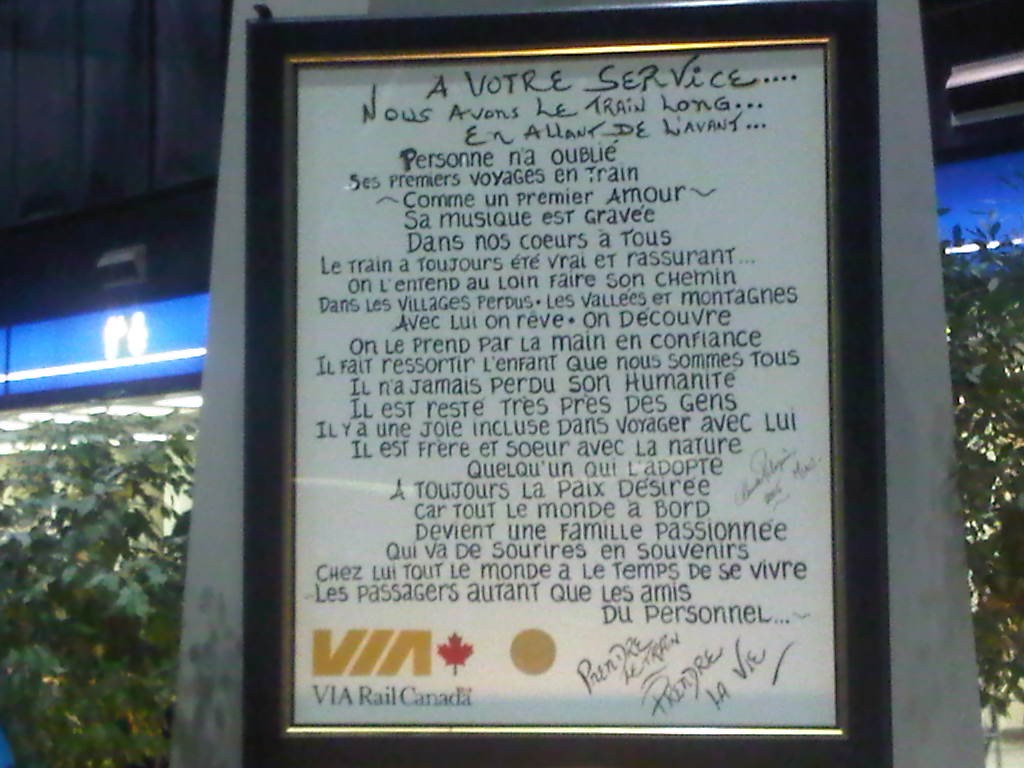 A VOTRE SERVICE....
NOUS AVONS LE TRAIN LONG...
EN ALLANT DE L'AVANT...
Personne n'a oublié
Ses premiers voyages en Train
~ Comme un premier Amour ~
Sa musique est Gravée
Dans nos coeurs à Tous
Le Train a Toujours été vrai et rassurant...
On L'entend au Loin Faire son Chemin
Dans Les villages Perdus • Les vallées et montagnes
Avec Lui on rêve • On Découvre
On Le Prend Par La main en confiance
Il Fait ressortir L'enfant Que nous sommes Tous
Il n'a Jamais Perdu son Humanité
Il est resté Très Près Des Gens
Il y a une Joie incluse Dans voyager avec Lui
Il est Frère et soeur avec La nature
Quelqu'un qui L'adopte
A Toujours La Paix Désirée
Car Tout Le monde à Bord
Devient une Famille Passionnée
Qui va De sourires en souvenirs
Chez Lui Tout Le monde a Le Temps De se vivre
Les Passagers autant Que Les amis
Du Personnel...~
PRENDRE
LE TRAIN
PRENDRE
LA VIE
VIA
VIA Rail Canada